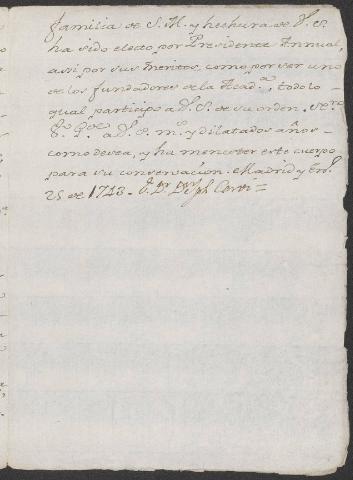 familia de S. M. y hechura de V. S.
ha sido electo por Presidente Annual,
assi por sus meritos, como por ser uno
de los fundadores de la Acad.ª, todo lo
qual participo a V. S. de su orden.
G.e a V. S. m.s y dilatados años
como desea, y ha menester este cuerpo
para su conservacion. Madrid y En.o
25 de 1743. D.r Jph Cervi